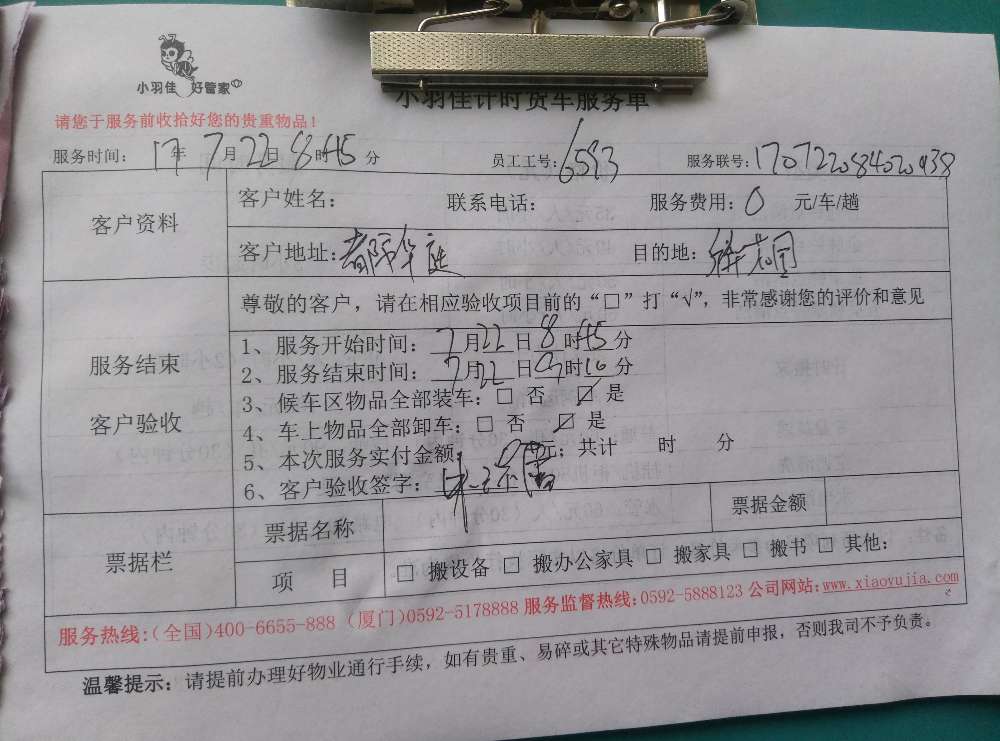 小羽佳 好管家
小羽佳计时货车服务单
请您于服务前收拾好您的贵重物品！
服务时间： 17年 7月22 8时45分 员工工号：6593 服务联号：170722084020438
客户资料
客户姓名： 联系电话： 服务费用：0 元/车/趟
客户地址：都际华庭 目的地：
服务结束
客户验收
尊敬的客户，请在相应验收项目前的“□”打“√”，非常感谢您的评价和意见
1、服务开始时间：7月22日8时45分
2、服务结束时间：7月22日9时10分
3、候车区物品全部装车：□ 否 ☑ 是
4、车上物品全部卸车：□ 否 ☑ 是
5、本次服务实付金额： 元；共计 时 分
6、客户验收签字：
票据栏
票据名称 票据金额
项 目 □ 搬设备 □ 搬办公家具 □ 搬家具 □ 搬书 □ 其他：
服务热线：(全国)400-6655-888 (厦门)0592-5178888 服务监督热线：0592-5888123 公司网站：www.xiaoyujia.com
温馨提示：请提前办理好物业通行手续，如有贵重、易碎或其它特殊物品请提前申报，否则我司不予负责。